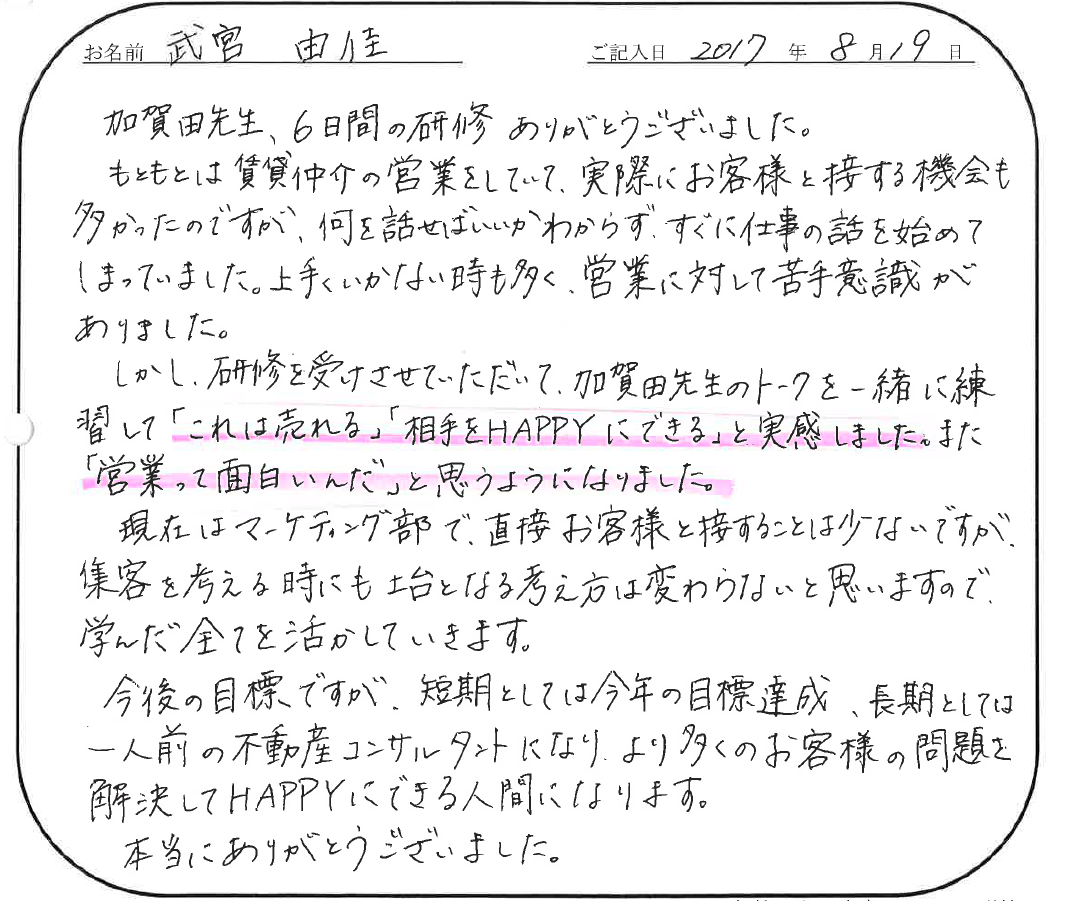 お名前 武宮 由佳 ご記入日 2017年8月19日
加賀田先生、6日間の研修ありがとうございました。
もともとは賃貸仲介の営業をしていて、実際にお客様と接する機会も
多かったのですが、何を話せばいいかわからず、すぐに仕事の話を始めて
しまっていました。上手くいかない時も多く、営業に対して苦手意識が
ありました。
しかし、研修を受けさせていただいて、加賀田先生のトークを一緒に練
習して「これは売れる」「相手をHAPPYにできる」と実感しました。また
「営業って面白いんだ」と思うようになりました。
現在はマーケティング部で、直接お客様と接することは少ないですが、
集客を考える時にも土台となる考え方は変わらないと思いますので、
学んだ全てを活かしていきます。
今後の目標ですが、短期としては今年の目標達成、長期としては
一人前の不動産コンサルタントになり、より多くのお客様の問題を
解決してHAPPYにできる人間になります。
本当にありがとうございました。